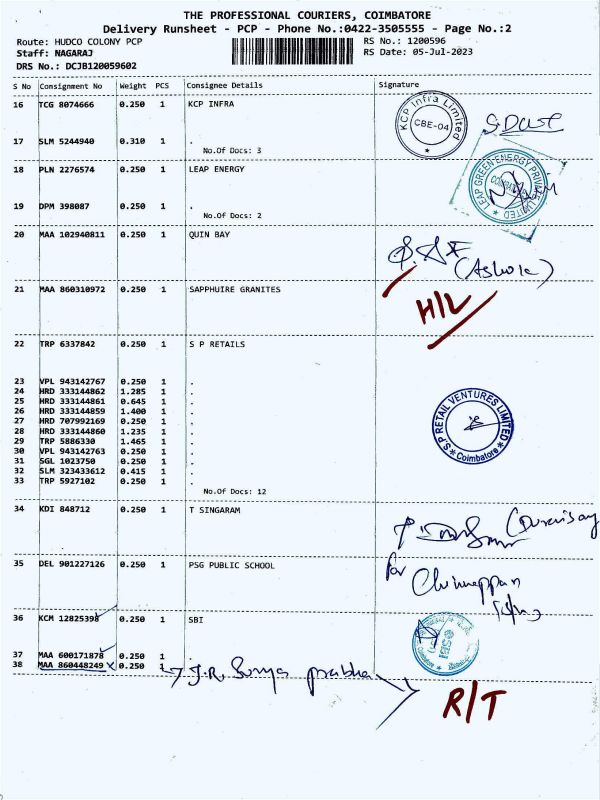 THE PROFESSIONAL COURIERS, COIMBATORE
Delivery Runsheet - PCP - Phone No.:0422-3505555 - Page No.:2
Route: HUDCO COLONY PCP RS No.: 1200596
Staff: NAGARAJ RS Date: 05-Jul-2023
DRS No.: DCJB120059602
S No Consignment No Weight PCS Consignee Details Signature
16 TCG 8074666 0.250 1 KCP INFRA
KCP Infra Limited
CBE-04
17 SLM 5244940 0.310 1 .
No.Of Docs: 3
18 PLN 2276574 0.250 1 LEAP ENERGY
LEAP GREEN ENERGY PRIVATE LIMITED
19 DPM 398087 0.250 1 .
No.Of Docs: 2
20 MAA 102940811 0.250 1 QUIN BAY
(Ashok)
21 MAA 860310972 0.250 1 SAPPHUIRE GRANITES
H/L
22 TRP 6337842 0.250 1 S P RETAILS
23 VPL 943142767 0.250 1 .
24 HRD 333144862 1.285 1 .
25 HRD 333144861 0.645 1 .
26 HRD 333144859 1.400 1 .
27 HRD 707992169 0.250 1 .
28 HRD 333144860 1.235 1 .
29 TRP 5886330 1.465 1 .
30 VPL 943142763 0.250 1 .
31 SGL 1023750 0.250 1 .
32 SLM 323433612 0.415 1 .
33 TRP 5927102 0.250 1 .
No.Of Docs: 12
S P RETAIL VENTURES LIMITED
Coimbatore
34 KDI 848712 0.250 1 T SINGARAM
35 DEL 901227126 0.250 1 PSG PUBLIC SCHOOL
for Chinnappan
36 KCM 12825398 0.250 1 SBI
37 MAA 600171878 0.250 1
38 MAA 860448249 0.250 1
J.R. Surya prabha
R/T